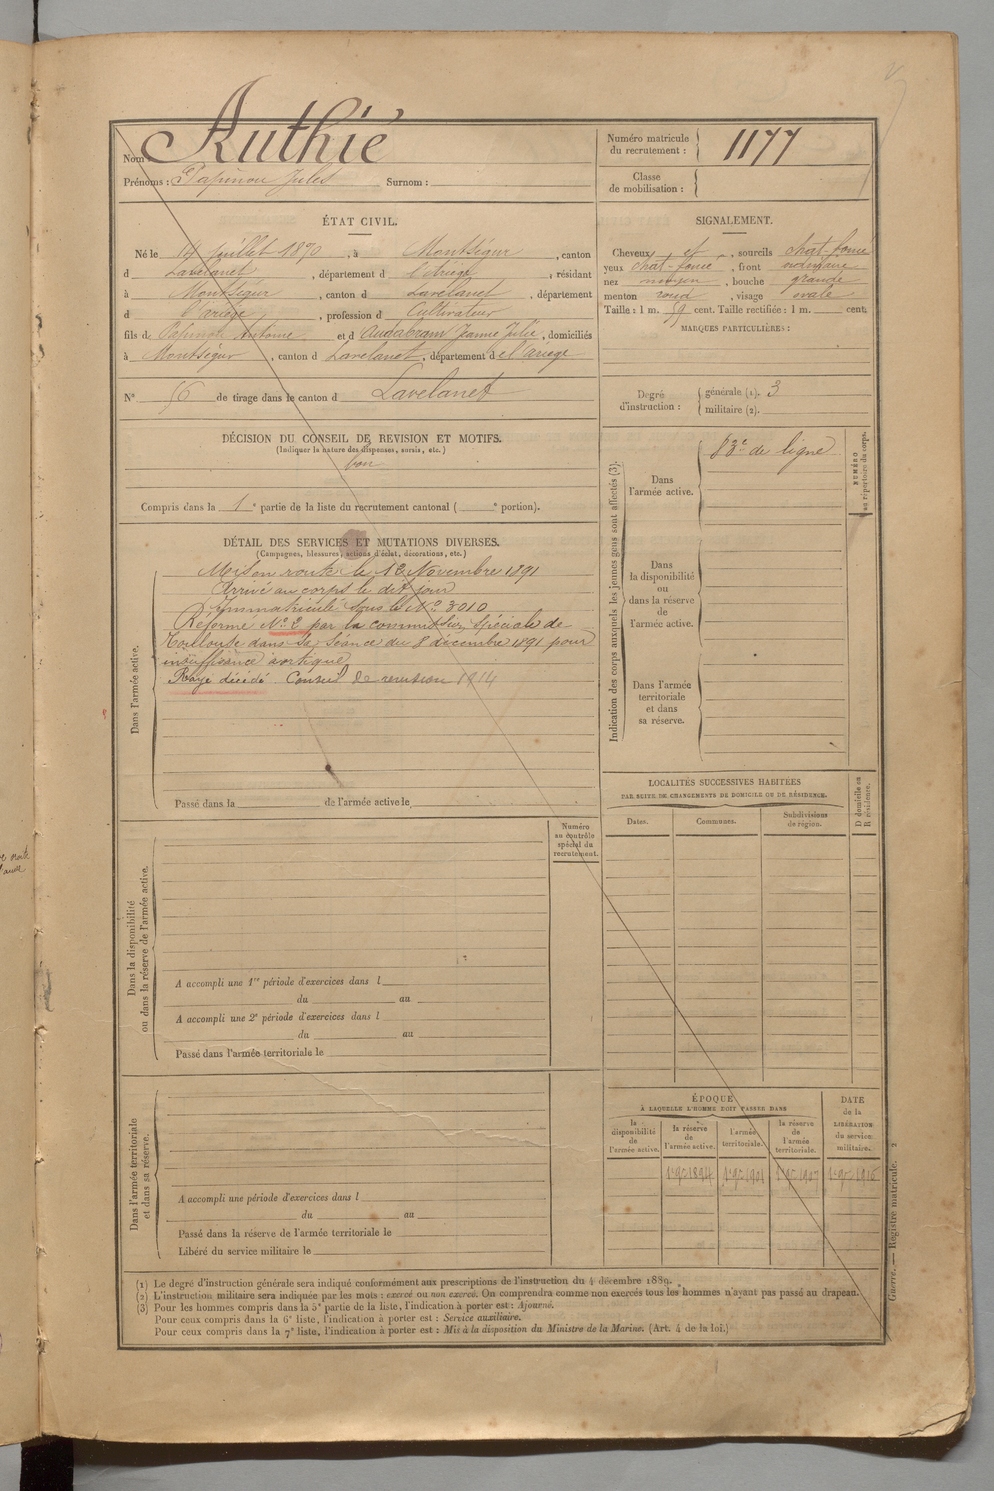 Nom : Authié
Prénoms : Papinou Jules Surnom :
Numéro matricule du recrutement : 1177
Classe de mobilisation :
ÉTAT CIVIL.
Né le 14 juillet 1870, à Montségur, canton
d Lavelanet, département d l'Ariège, résidant
à Montségur, canton d Lavelanet, département
d l'ariège, profession d Cultivateur
fils de Antoine et d Audabram Jeanne Julie, domiciliés
à Montségur, canton d Lavelanet, département de l'ariege
N° 56 de tirage dans le canton d Lavelanet
SIGNALEMENT.
Cheveux et, sourcils chat-foncé
yeux chat-foncé, front ordinaire
nez moyen, bouche grande
menton rond, visage ovale
Taille : 1 m. 59 cent. Taille rectifiée : 1 m. cent.
MARQUES PARTICULIÈRES :
Degré d'instruction : générale (1). 3
militaire (2).
DÉCISION DU CONSEIL DE REVISION ET MOTIFS.
(Indiquer la nature des dispenses, sursis, etc.)
bon
Compris dans la 1e partie de la liste du recrutement cantonal ( e portion).
DÉTAIL DES SERVICES ET MUTATIONS DIVERSES.
(Campagnes, blessures, actions d'éclat, décorations, etc.)
Dans l'armée active.
Mis en route le 12 Novembre 1891
Arrivé au corps le dit jour
Immatriculé sous le N° 3010
Réformé N° 2 par la commission spéciale de
Toulouse dans sa séance du 8 décembre 1891 pour
insuffisance aortique
Rayé décédé Conseil de revision 1914
Passé dans la de l'armée active le
Indication des corps auxquels les jeunes gens sont affectés (3).
Dans l'armée active.
83e de ligne
NUMÉRO au répertoire du corps.
Dans la disponibilité ou dans la réserve de l'armée active.
Dans l'armée territoriale et dans sa réserve.
LOCALITÉS SUCCESSIVES HABITÉES
PAR SUITE DE CHANGEMENTS DE DOMICILE OU DE RÉSIDENCE.
Dates. Communes. Subdivisions de région.
D domicile ou R résidence.
Numéro au contrôle spécial du recrutement.
Dans la disponibilité ou dans la réserve de l'armée active.
A accompli une 1re période d'exercices dans l
du au
A accompli une 2e période d'exercices dans l
du au
Passé dans l'armée territoriale le
Dans l'armée territoriale et dans sa réserve.
A accompli une période d'exercices dans l
du au
Passé dans la réserve de l'armée territoriale le
Libéré du service militaire le
ÉPOQUE
À LAQUELLE L'HOMME DOIT PASSER DANS
la disponibilité de l'armée active.
la réserve de l'armée active.
l'armée territoriale.
la réserve de l'armée territoriale.
DATE de la LIBÉRATION du service militaire.
(1) Le degré d'instruction générale sera indiqué conformément aux prescriptions de l'instruction du 4 décembre 1889.
(2) L'instruction militaire sera indiquée par les mots : exercé ou non exercé. On comprendra comme non exercés tous les hommes n'ayant pas passé au drapeau.
(3) Pour les hommes compris dans la 5e partie de la liste, l'indication à porter est : Ajourné.
Pour ceux compris dans la 6e liste, l'indication à porter est : Service auxiliaire.
Pour ceux compris dans la 7e liste, l'indication à porter est : Mis à la disposition du Ministre de la Marine. (Art. 4 de la loi.)
Guerre. — Registre matricule. 2